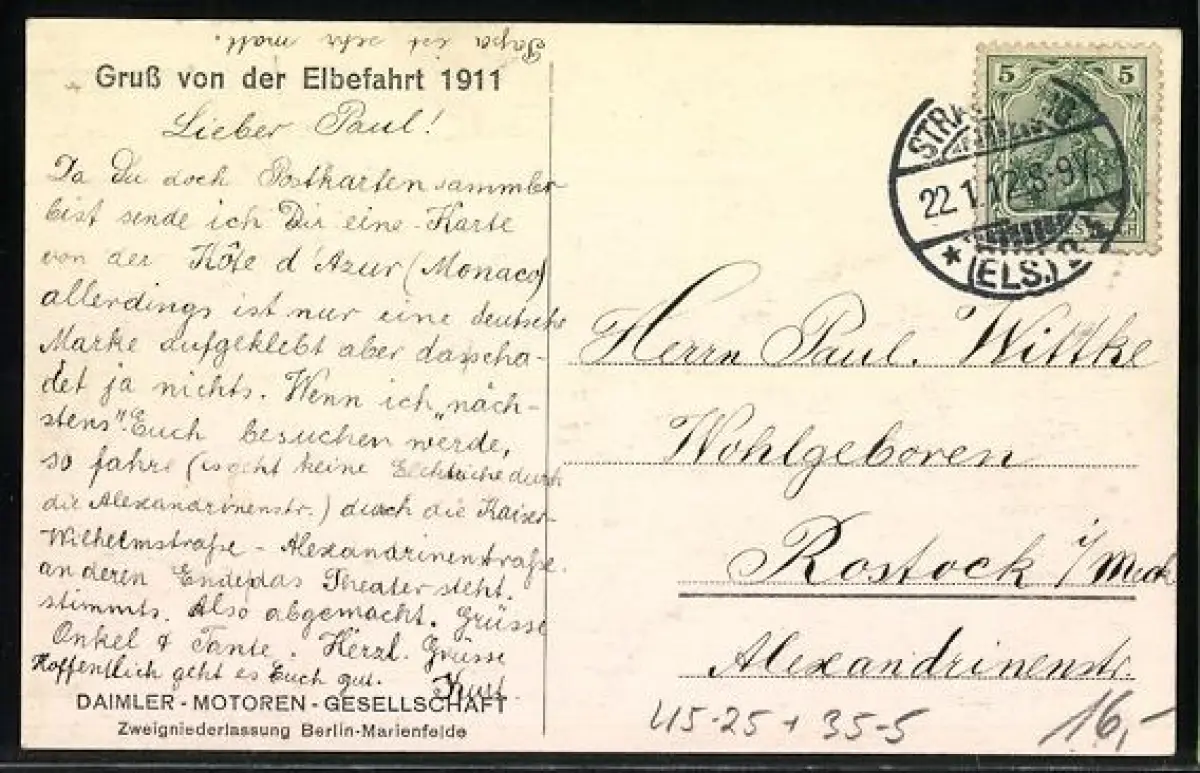 Papa ist sehr matt.
Gruß von der Elbefahrt 1911
Lieber Paul!
Da Du doch Postkartensammler
bist sende ich Dir eine Karte
von der Kôte d'Azur (Monaco)
allerdings ist nur eine deutsche
Marke aufgeklebt aber das scha-
det ja nichts. Wenn ich „näch-
stens" Euch besuchen werde,
so fahre (es geht keine Elektrische durch
die Alexandrinenstr.) durch die Kaiser-
Wilhelmstraße - Alexandrinenstraße.
an deren Ende das Theater steht.
stimmts. Also abgemacht. Grüsse
Onkel & Tante. Herzl. Grüsse
Hoffentlich geht es Euch gut. Kurt.
DAIMLER-MOTOREN-GESELLSCHAFT
Zweigniederlassung Berlin-Marienfelde
5 5
STRA
22.1.12. 8-9V.
* (ELS.) *
Herrn Paul. Wittke
Wohlgeboren
Rostock i/Meck
Alexandrinenstr.
45-25+35-5
16,-